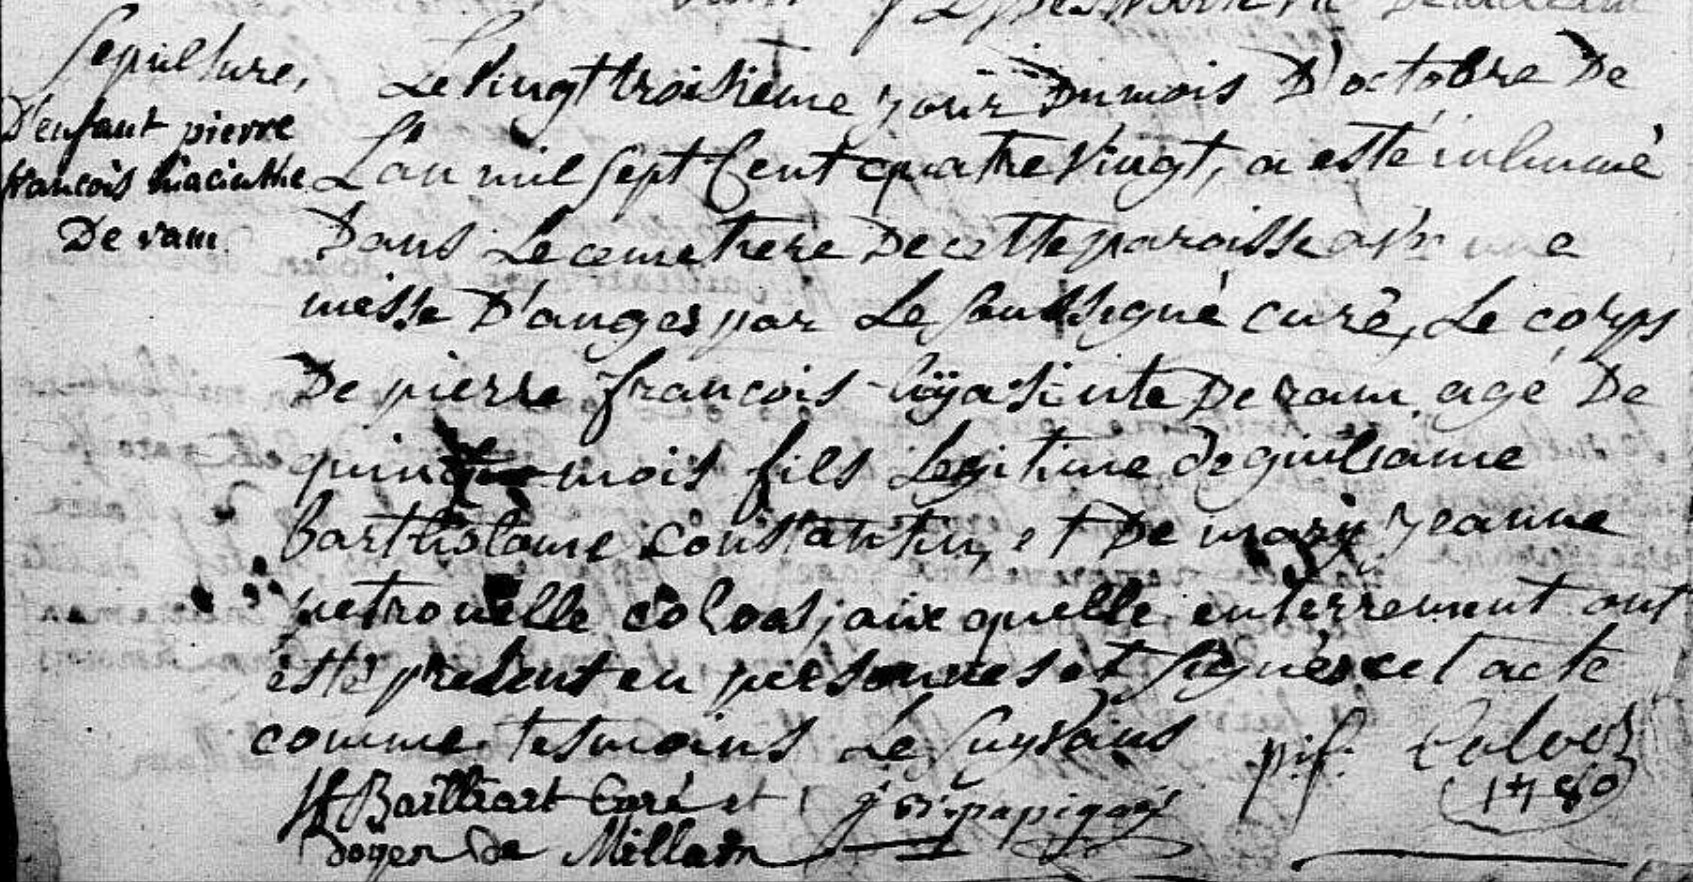 Sepulture,
D'enfant pierre
francois hiacinthe
De ram
Le Vingt troisième jour Du mois D'octobre De
L'an mil sept Cent quatre Vingt, a esté inhumé
Dans Le cemetiere De cette paroisse
messe D'anges par Le soussigné curé, Le corps
De pierre francois hÿasinte De ram agé De
mois fils Legitime de guiliame
Bartholome Constantin, et De mary Jeanne
petronelle Coloos, aux quelle enterrement ont
esté present en personnes et signés cet acte
comme tesmoins Le suyvans
Bailliart Curé et
doyen de Millam
papigay
p.j.f. Coloos
1780